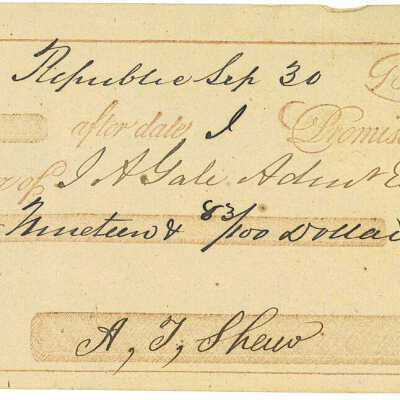 Republic Sep 30
after date I Promis
of J A Gale Admr
Nineteen & 83/100 Dolla
A, J, Shaw